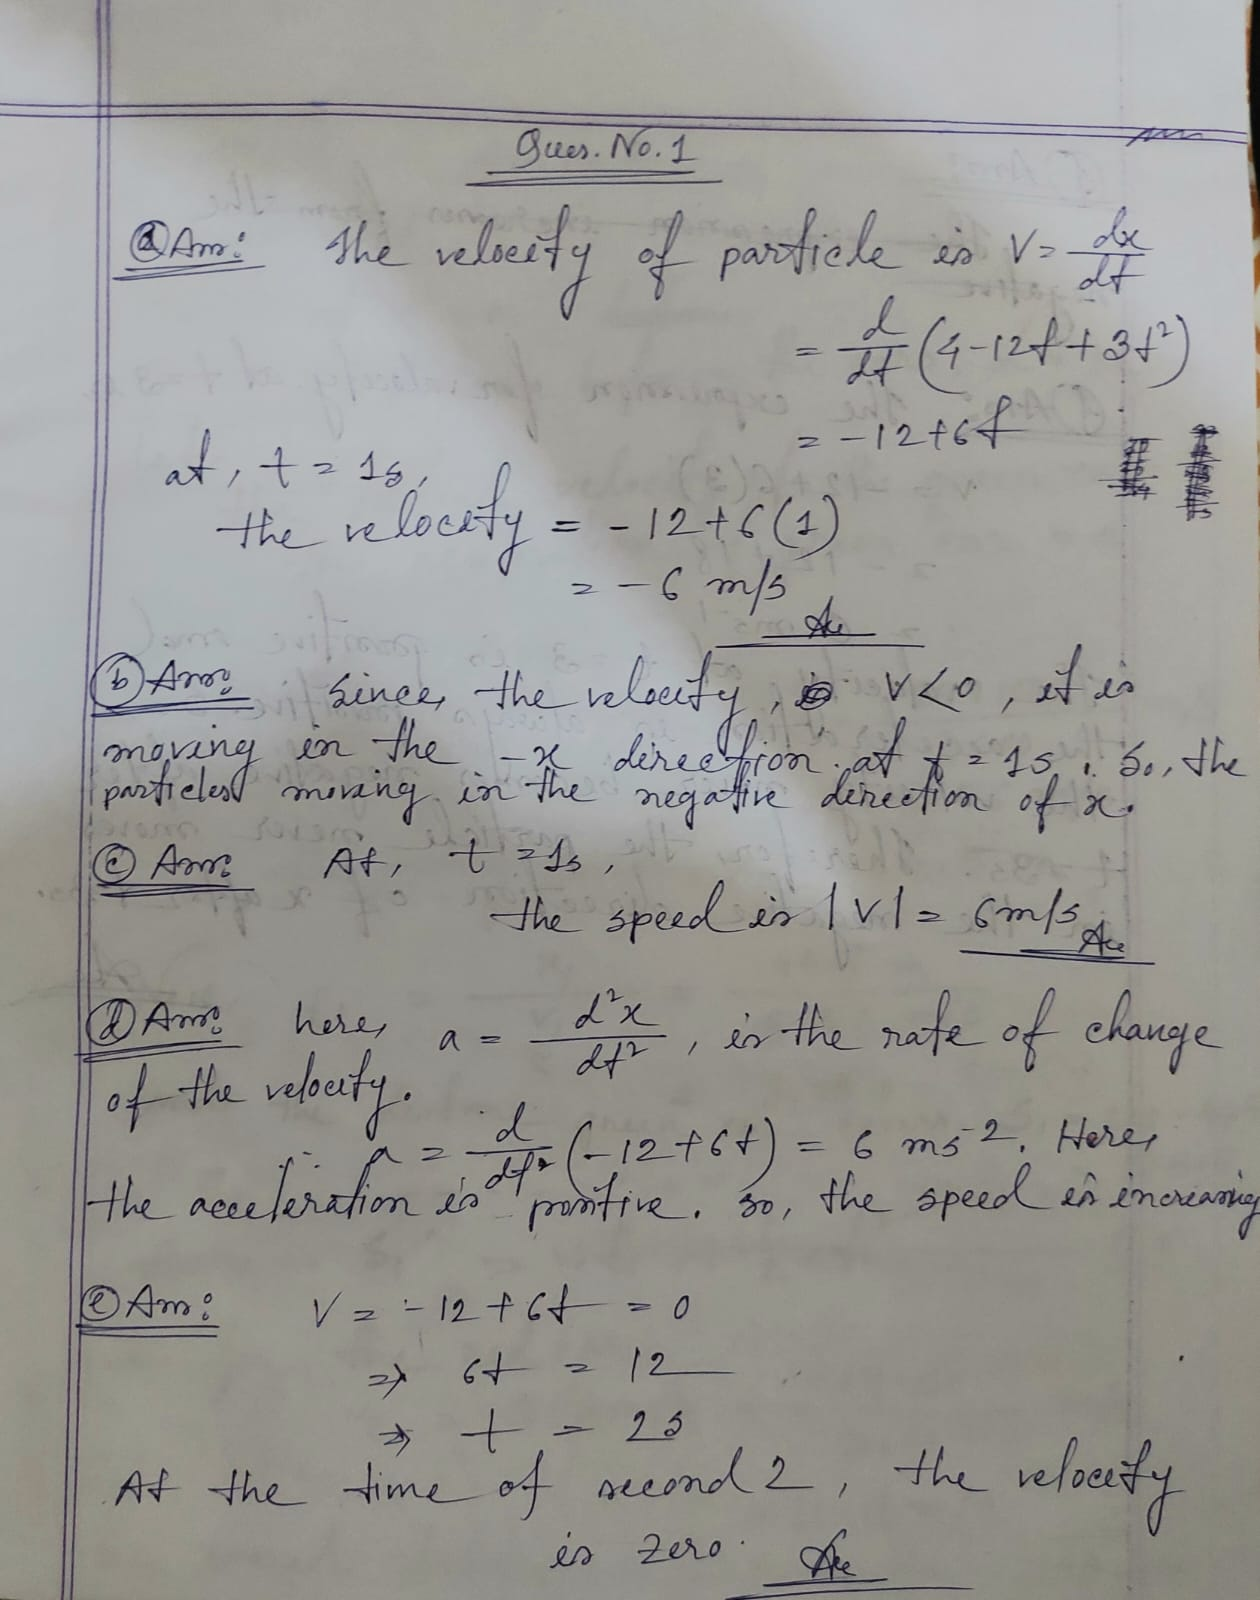 Ques. No. 1
ⓐ Ans: The velocity of particle is V = dx/dt
= d/dt (4-12t+3t²)
= -12+6t
at, t = 1s,
the velocity = -12+6(1)
= -6 m/s
Ans
ⓑ Ans: Since, the velocity, V<0, it is
moving in the -x direction at t = 1s. So, the
particle moving in the negative direction of x.
ⓒ Ans: At, t = 1s,
the speed is |V| = 6m/s
Ans
ⓓ Ans: here, a = d²x/dt², is the rate of change
of the velocity.
∴ a = d/dt (-12+6t) = 6 ms⁻². Here,
the acceleration is positive. So, the speed is increasing
ⓔ Ans: V = -12+6t = 0
⇒ 6t = 12
⇒ t = 2s
At the time of second 2, the velocity
is zero.
Ans